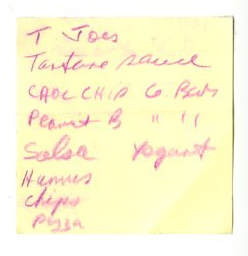 T Joes
Tartare sauce
CHOC CHIP G Bars
Peanut B " "
Salsa Yogart
Humus
Chips
pizza